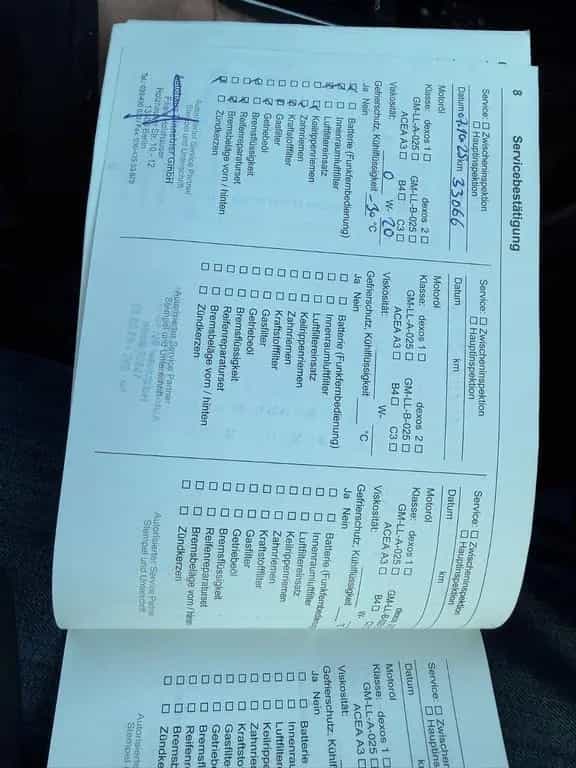 8 Servicebestätigung
Service: ☐ Zwischeninspektion
☐ Hauptinspektion
Datum km 33066
Motoröl
Klasse: dexos 1 ☐ dexos 2 ☐
GM-LL-A-025 ☐ GM-LL-B-025 ☐
ACEA A3 ☐ B4 ☐ C3 ☐
Viskosität: 0 W- 20
Gefrierschutz, Kühlflüssigkeit -30 °C
Ja Nein
Batterie (Funkfernbedienung)
Innenraumluftfilter
Luftfiltereinsatz
Keilrippenriemen
Zahnriemen
Kraftstofffilter
Gasfilter
Getriebeöl
Bremsflüssigkeit
Reifenreparaturset
Bremsbeläge vorn / hinten
Zündkerzen
Autorisierter Service Partner
Stempel und Unterschrift
Service: ☐ Zwischeninspektion
☐ Hauptinspektion
Datum km
Motoröl
Klasse: dexos 1 ☐ dexos 2 ☐
GM-LL-A-025 ☐ GM-LL-B-025 ☐
ACEA A3 ☐ B4 ☐ C3 ☐
Viskosität: W-
Gefrierschutz, Kühlflüssigkeit °C
Ja Nein
☐ ☐ Batterie (Funkfernbedienung)
☐ ☐ Innenraumluftfilter
☐ ☐ Luftfiltereinsatz
☐ ☐ Keilrippenriemen
☐ ☐ Zahnriemen
☐ ☐ Kraftstofffilter
☐ ☐ Gasfilter
☐ ☐ Getriebeöl
☐ ☐ Bremsflüssigkeit
☐ ☐ Reifenreparaturset
☐ ☐ Bremsbeläge vorn / hinten
☐ ☐ Zündkerzen
Autorisierter Service Partner
Stempel und Unterschrift
Service: ☐ Zwischeninspektion
☐ Hauptinspektion
Datum km
Motoröl
Klasse: dexos 1 ☐ dexos
GM-LL-A-025 ☐ GM-LL-B-0
ACEA A3 ☐ B4 ☐
Viskosität: W
Gefrierschutz, Kühlflüssigkeit
Ja Nein
☐ ☐ Batterie (Funkfernbedien
☐ ☐ Innenraumluftfilter
☐ ☐ Luftfiltereinsatz
☐ ☐ Keilrippenriemen
☐ ☐ Zahnriemen
☐ ☐ Kraftstofffilter
☐ ☐ Gasfilter
☐ ☐ Getriebeöl
☐ ☐ Bremsflüssigkeit
☐ ☐ Reifenreparaturset
☐ ☐ Bremsbeläge vorn / hinten
☐ ☐ Zündkerzen
Autorisierter Service Partner
Stempel und Unterschrift
Service: ☐ Zwischen
☐ Hauptin
Datum
Motoröl
Klasse: dexos 1
GM-LL-A-025
ACEA A3
Viskosität:
Gefrierschutz, Kühl
Ja Nein
☐ ☐ Batterie
☐ ☐ Innenrau
☐ ☐ Luftfilter
☐ ☐ Keilrippe
☐ ☐ Zahnrie
☐ ☐ Kraftsto
☐ ☐ Gasfilte
☐ ☐ Getrieb
☐ ☐ Bremsfl
☐ ☐ Reifen
☐ ☐ Bremsb
☐ ☐ Zündke
Autorisierte
Stempel